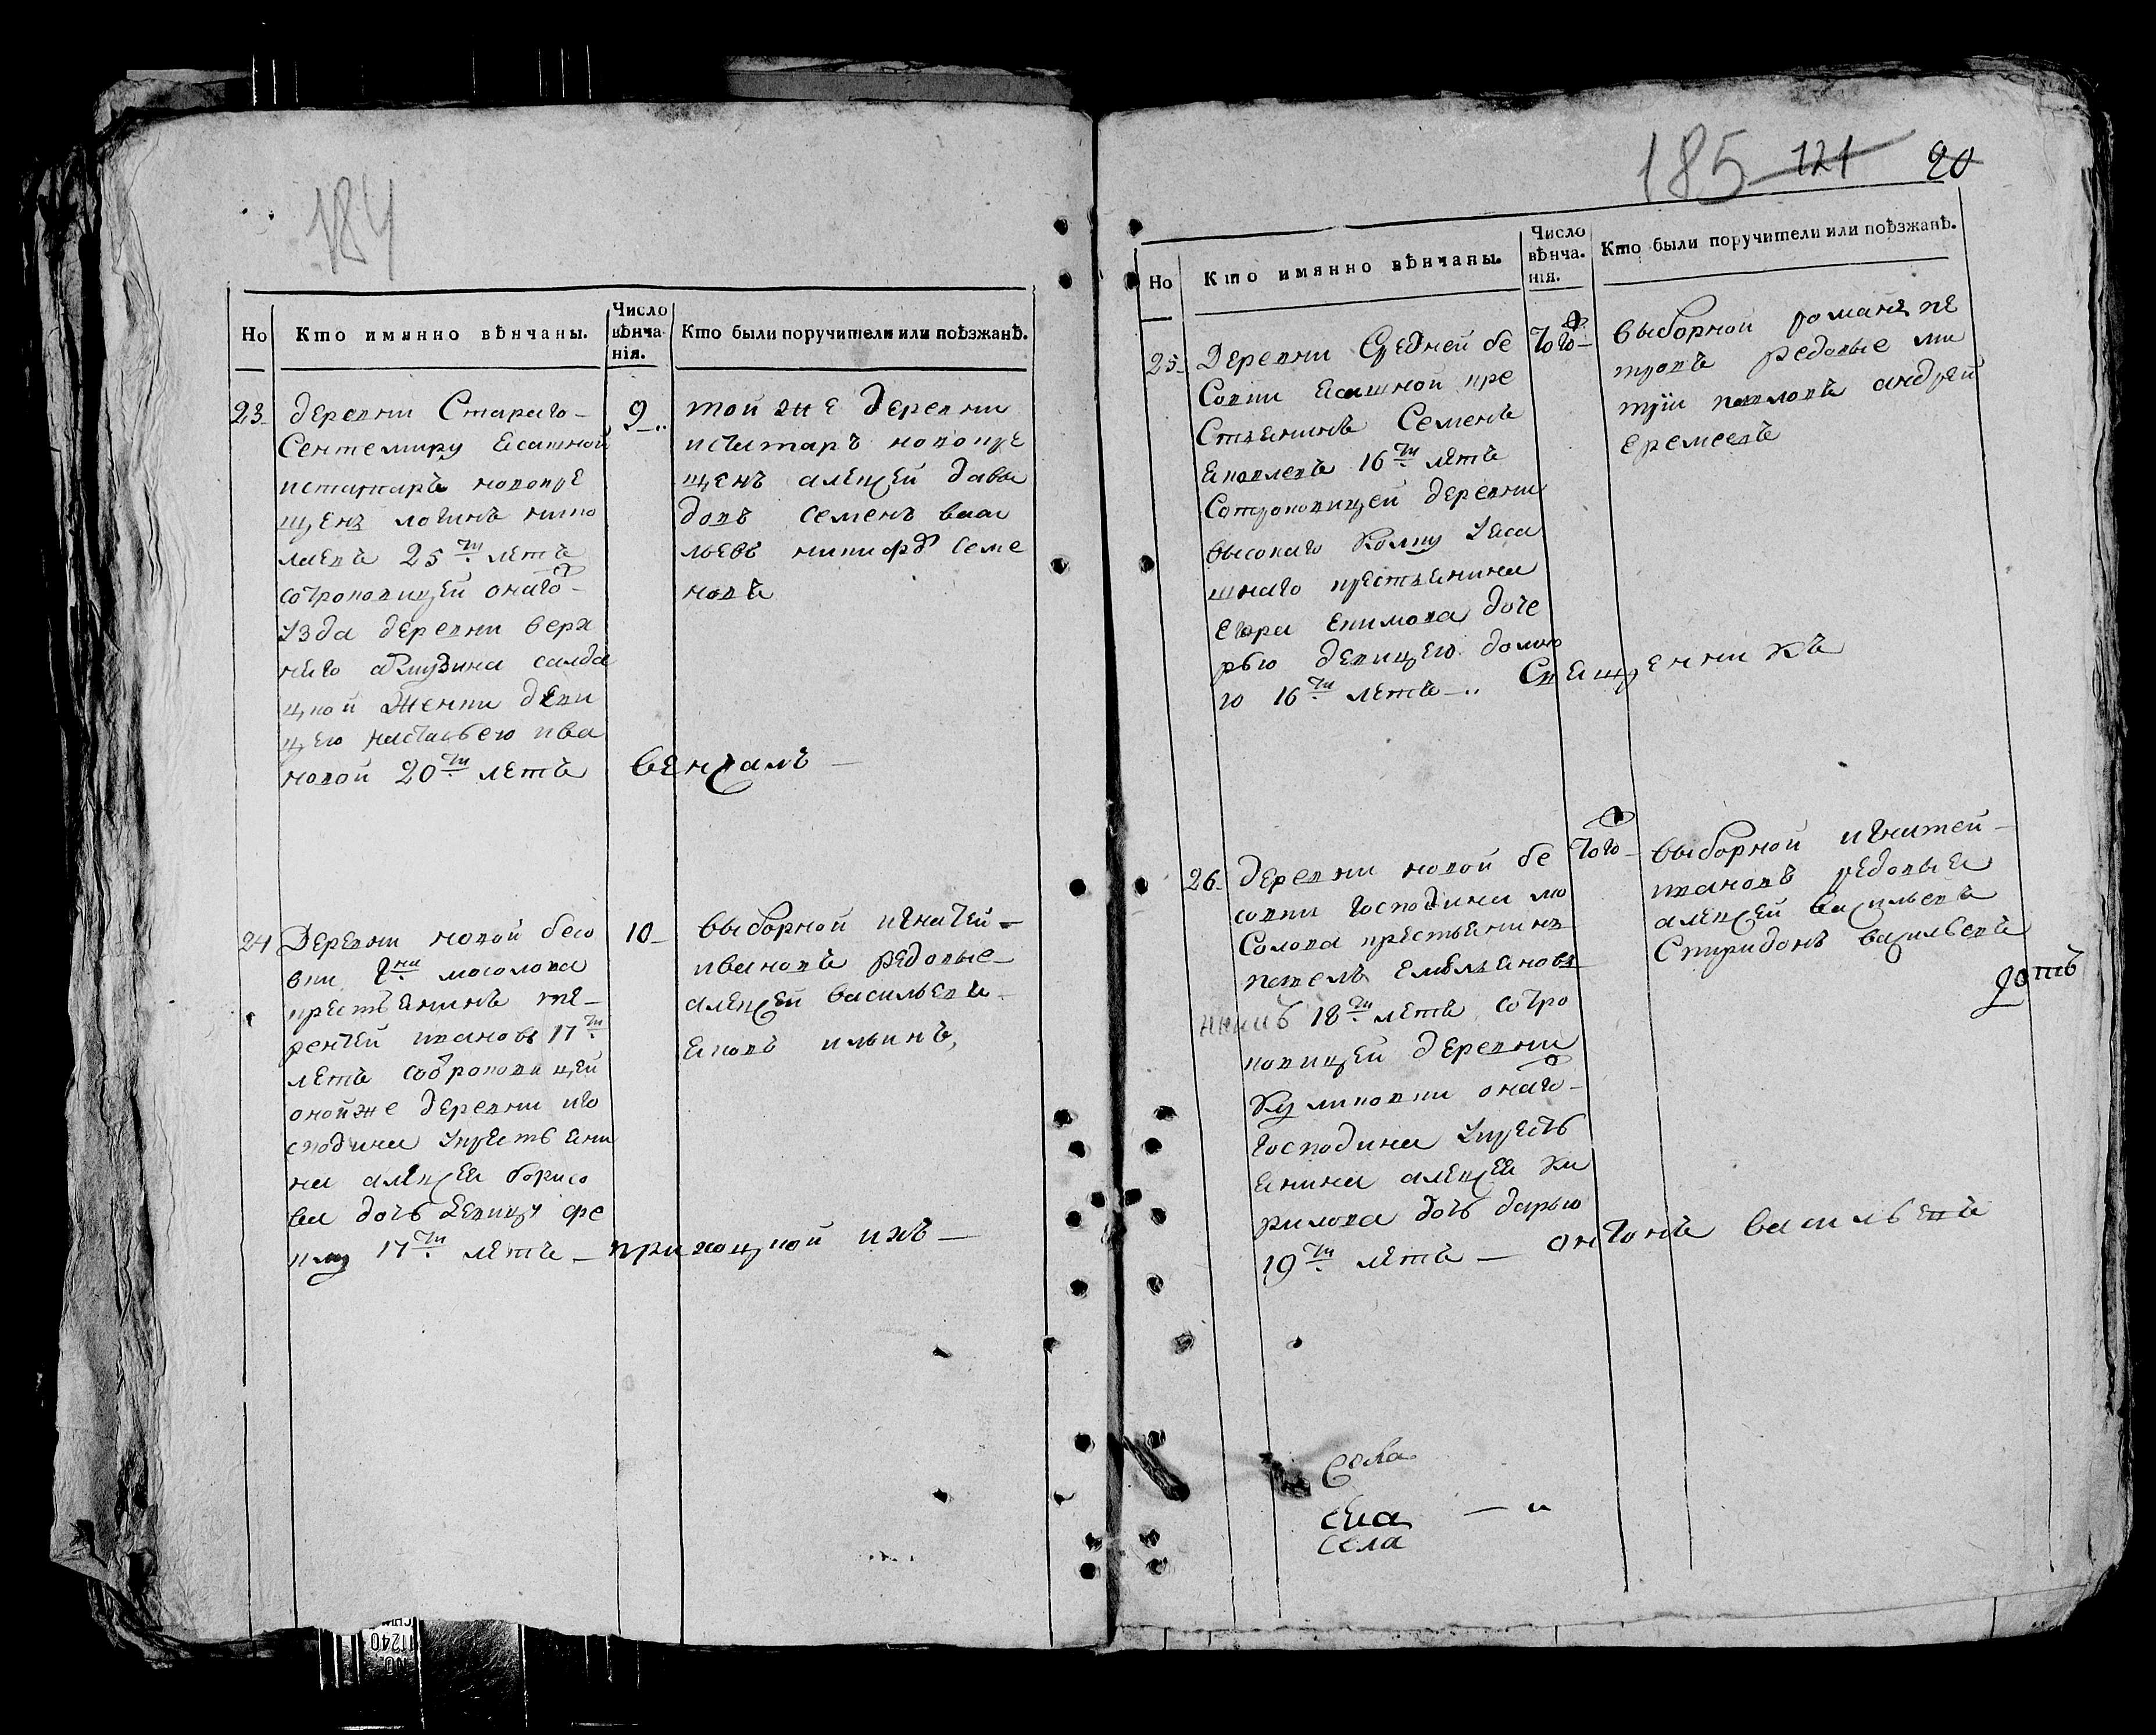 184
Но
Кто имянно вѣнчаны.
Число вѣнча- нія.
Кто были поручители или поѣзжанѣ.
23
деревни Стараго
Сентемиру Ясашной
новокре
щенъ логинъ нико
лаевъ 25ти летъ
сотроковицей онаго
уезда деревни верх
няго салда
цкой женки деви
цею настасьею ива
новой 20ти летъ
9
той же деревни
новокре
щенъ алексей давы
довъ семенъ васи
льевъ никифоръ семе
новъ
венчалъ
24
Деревни новой бесо
вки гдна мосолова
крестьянинъ те
рентей ивановъ 17ти
летъ сотроковицей
онойже деревни иго
сподина укрестьяни
на алексея борисо
ва дочь девицу фе
клу 17ти летъ
10
выборной игнатей
ивановъ редовые
алексей васильевъ
яковъ ильинъ
приходской ихъ
185 121 20
Но
Кто имянно вѣнчаны.
Число вѣнча- нія.
Кто были поручители или поѣзжанѣ.
25
Деревни Средней бе
совки ясашной кре
стьянинъ Семенъ
яковлевъ 16ти летъ
Сотроковицей деревни
высокаго Колку уяса
шнаго крестьянина
егора екимова доче
рью девицею домно
ю 16ти летъ
Того
выборной романъ пе
тровъ редовые ми
трiи павловъ андрей
еремеевъ
Священникъ
26
деревни новой бе
совки господина мо
солова крестьянинъ
павелъ емельяновъ
18ти летъ сотро
ковицей деревни
Куликовки онаго
господина укресть
янина алексея ки
рилова дочь дарью
19ти летъ
Того
выборной игнатей
ивановъ редовыя
алексей васильевъ
Спиридонъ васильевъ
антонъ васильевъ
Села
села
села